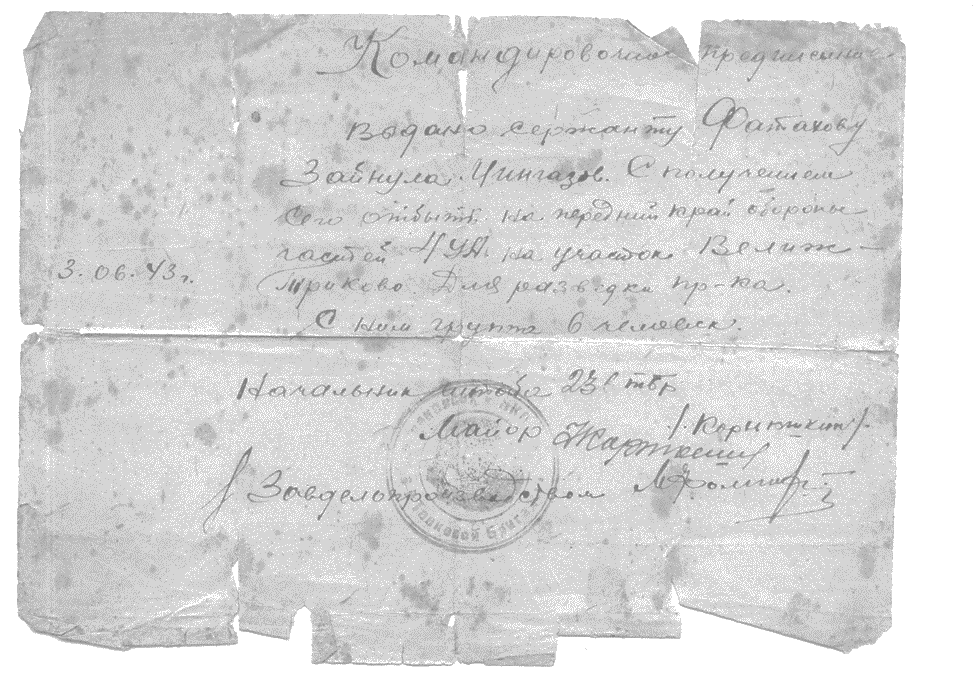 Командировочное предписание
Выдано сержанту Фатахову
Зайнула Чингазов. С получением
сего отбыть на передний край обороны
частей 4 УА на участок Велиж –
Для разведки пр-ка.
С ним группа 6 человек.
3.06.43г.
Начальник штаба тбр
Майор
Завделопроизводством
танковой Бриг